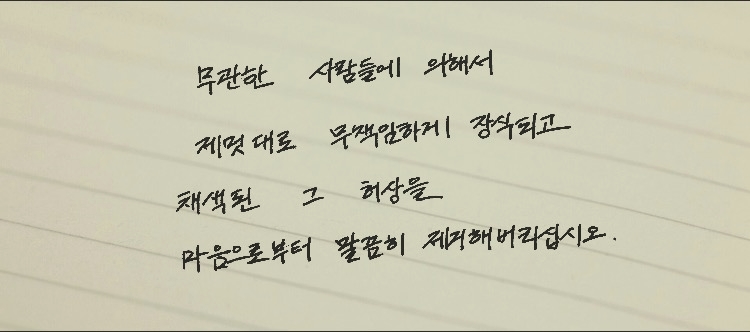 무관한 사람들에 의해서
제멋대로 무책임하게 장식되고
채색된 그 허상을
마음으로부터 말끔히 제거해버리십시오.